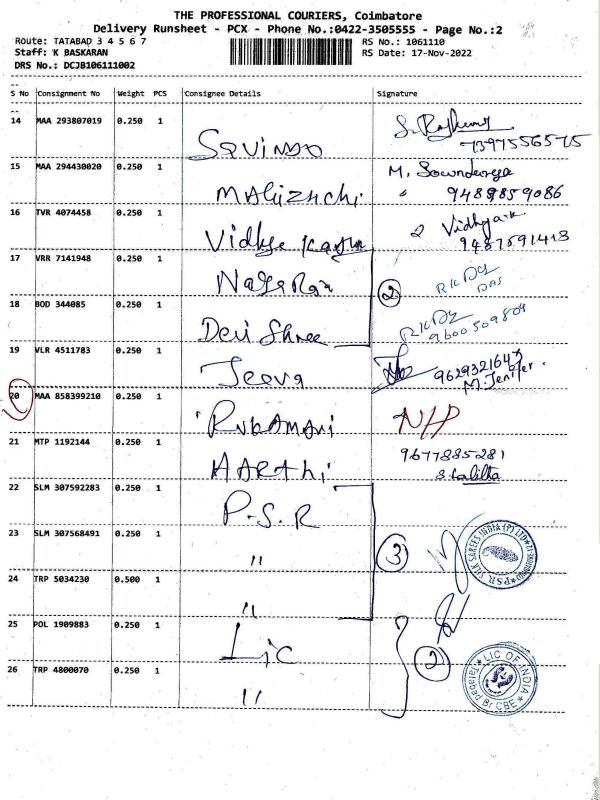 THE PROFESSIONAL COURIERS, Coimbatore
Delivery Runsheet - PCX - Phone No.:0422-3505555 - Page No.:2
Route: TATABAD 3 4 5 6 7
RS No.: 1061110
Staff: K BASKARAN
RS Date: 17-Nov-2022
DRS No.: DCJB106111002
S No Consignment No Weight PCS Consignee Details Signature
14 MAA 293807019 0.250 1
7397556575
15 MAA 294430020 0.250 1 M. Soundarya
9489859086
16 TVR 4074458 0.250 1 Vidhya
17 VRR 7141948 0.250 1 Nagaraj
2
18 BOD 344085 0.250 1 Devi Shree
19 VLR 4511783 0.250 1 Jeeva
M. Jenifer.
20 MAA 858399210 0.250 1 Rukamani N/P
21 MTP 1192144 0.250 1 HARThi 9677885281
S. Lalitha
22 SLM 307592283 0.250 1 P.S.R
23 SLM 307568491 0.250 1 " 3
24 TRP 5034230 0.500 1 "
25 POL 1909883 0.250 1 Lic
2
26 TRP 4800070 0.250 1 "
LIC OF INDIA
Tatabad Br CBE